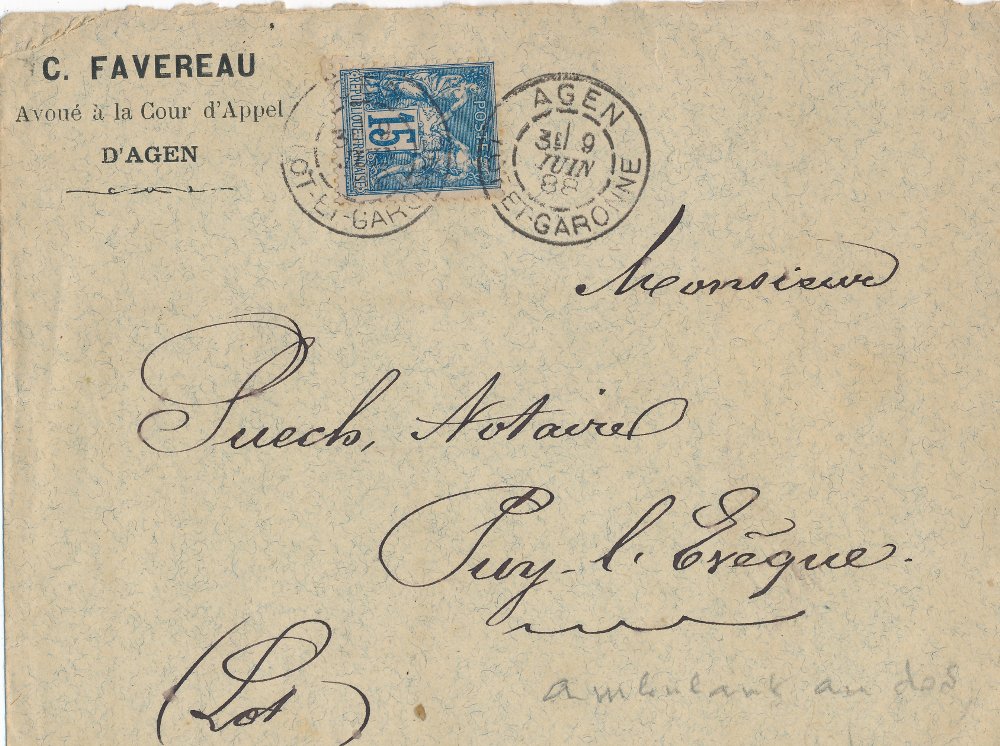 C. FAVEREAU
Avoué à la Cour d'Appel
D'AGEN
POSTES
REPUBLIQUE FRANÇAISE
15
OT-ET-GARO
AGEN
3E 9
JUIN
88
ET-GARONNE
Monsieur
Puech, Notaire
Puy-l'Evêque.
(Lot)
ambulant au dos